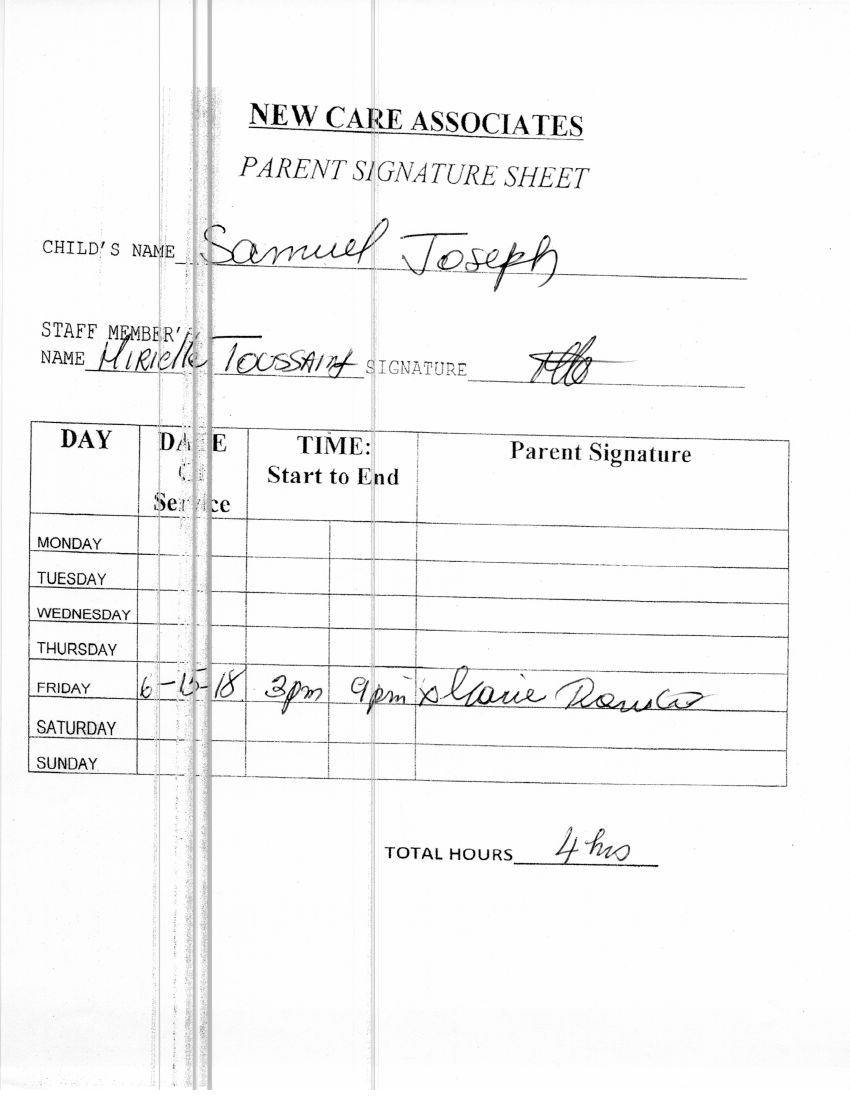 NEW CARE ASSOCIATES
PARENT SIGNATURE SHEET
CHILD'S NAME Samuel Joseph
STAFF MEMBER'S
NAME Mirielle Toussaint SIGNATURE
DAY DATE TIME: Parent Signature
Of Start to End
Service
MONDAY
TUESDAY
WEDNESDAY
THURSDAY
FRIDAY 6-15-18 3pm 9pm x Marie
SATURDAY
SUNDAY
TOTAL HOURS 4 hrs